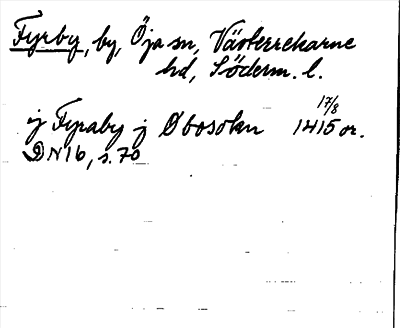 Fyrby, by, Öja sn, Västerrekarne
hd, Söderm. l.
17/8
ij Fyraby j Øbosokn 1415 or.
DN 16, s. 70